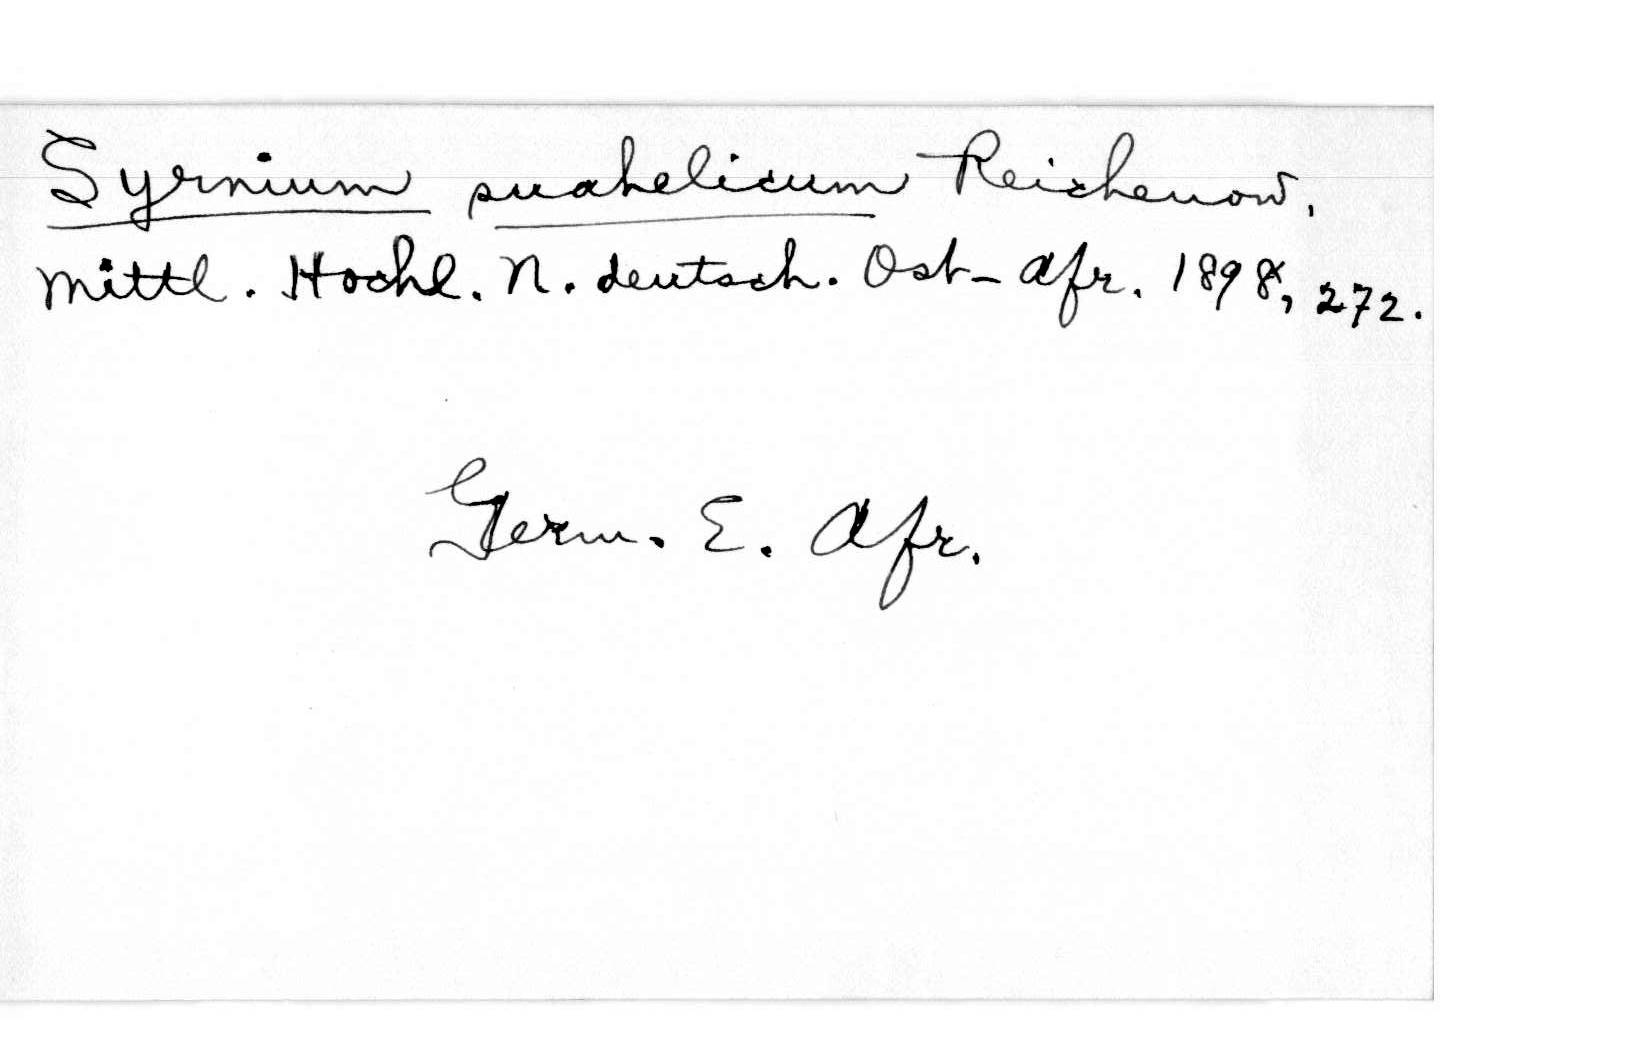 Syrnium suahelicum Reichenow,
Mittl. Hochl. N. deutsch. Ost-Afr. 1898, 272.
Germ. E. Afr.